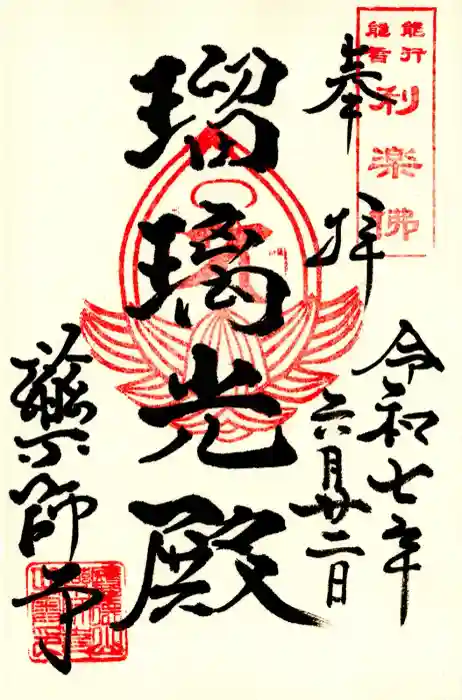 奉拝
令和七年
六月廿二日
瑠璃光殿
藥師寺
利楽佛